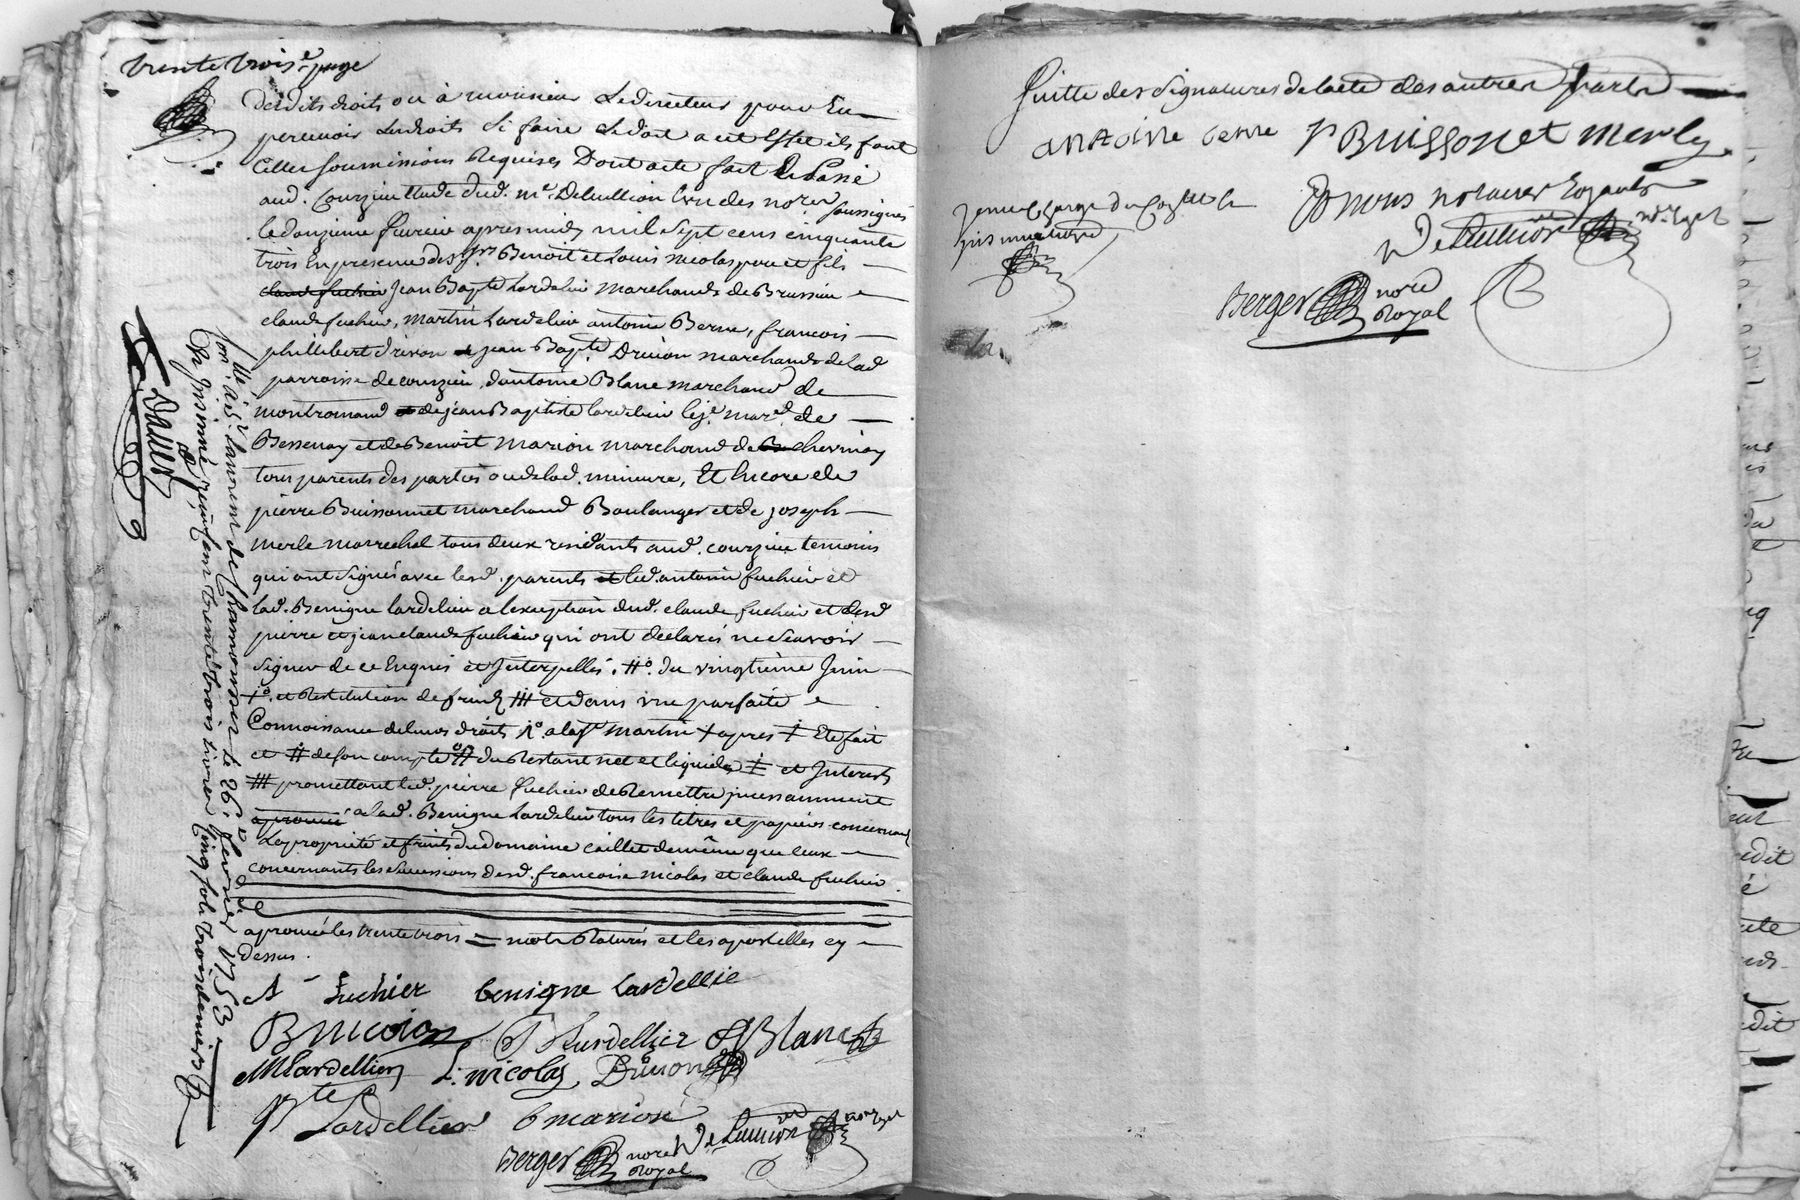 trente trois.e page
desdits droits ou à monsieur le directeur pour en
percevoir les droits si faire se doit a cet effet ils font
telles soumissions Requises Dont acte fait & Passé
aud. Courzieu Etude dud. m.e Delullion L'un des no.res soussignés
le douzieme fevrier apres midy mil sept cens cinquante
trois En presence des s.rs Benoit et Louis nicolas pere et fils
claude fuchier Jean Bap.te Lardelier marchands de Brussieu
claude fuchier, martin Lardelier antoine Berne, francois
phillibert Drivon et jean Bap.te Drivon marchands de lad
parroisse de courzieu, d'antoine Blanc marchand de
montromand et de jean Baptiste lardelier le j.e mar.d de
Bessenay et de Benoit Marion marchand de Be chevinay
tous parents des parties ou de lad. mineure, Et Encore de
pierre Buissonnet marchand Boulanger et de joseph
merle marechal tous deux residants aud. courzieu temoins
qui ont signés avec lesd. parents et led. antoine fuchier et
lad. Benigne lardelier a l'exception dud. claude fuchier et desd
pierre et jean claude fuchier qui ont declarés ne scavoir
signer de ce Enquis et Interpellés. #.o du vingtieme Juin
+.o et Restitution de fruits ### et dans une parfaite
Connoissance de leurs droits 1.o a la s.t martin + apres ‡ Ete fait
et # de son compte # du Restant net et liquide ‡ et Interests
### promettant led. pierre fuchier de Remettre incessamment
a lad. Benigne Lardelier tous les titres et papiers concernants
La proprieté et fruits du domaine caillet de même que ceux
concernants les successions desd. francoise nicolas et claude fuchier.
aprouvé les trente trois = mots Raturés et les apostilles cy
dessus.
A fuchier benigne Lardellie
B nicolas J Lardellier A Blanc
M Lardellier L. nicolas Drivon
J B.te Lardellier b marion
Delullion no.re Royal
Berger no.re Royal
Con.llé à S.t Laurent de Chamousset le 26.e fevrier 1753
et Insinué, Reçu cent trente trois livres cinq sols trois deniers
Suitte des signatures de l'acte des autres parts
antoine berne P Buissonet Merle
Et nous notaires Royaults
Delullion no.re Royal
Berger no.re Royal